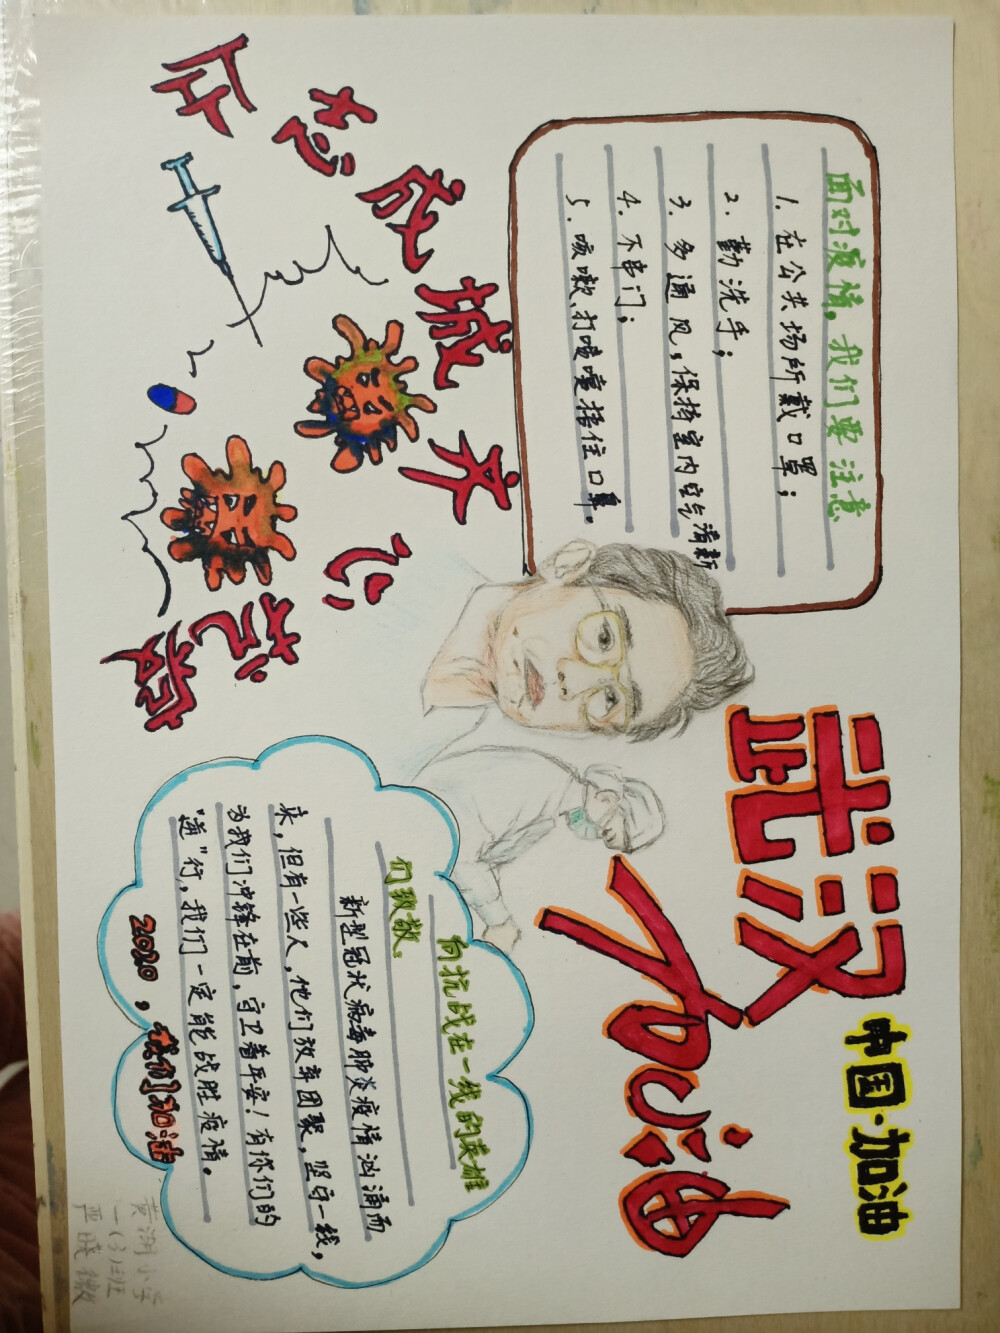 中国·加油
武汉
加油
面对疫情，我们要注意
1. 在公共场所戴口罩；
2. 勤洗手；
3. 多通风，保持室内空气清新
4. 不串门；
5. 咳嗽、打喷嚏捂住口鼻。
志成城齐心
向抗战在一线的英雄
们致敬。
新型冠状病毒肺炎疫情汹涌而
来，但有一些人，他们放弃团聚，坚守一线，
为我们冲锋在前，守卫着平安！有你们的
“逆”行，我们一定能战胜疫情。
2020，我们加油
黄湖小学
一(3)班
严晓微